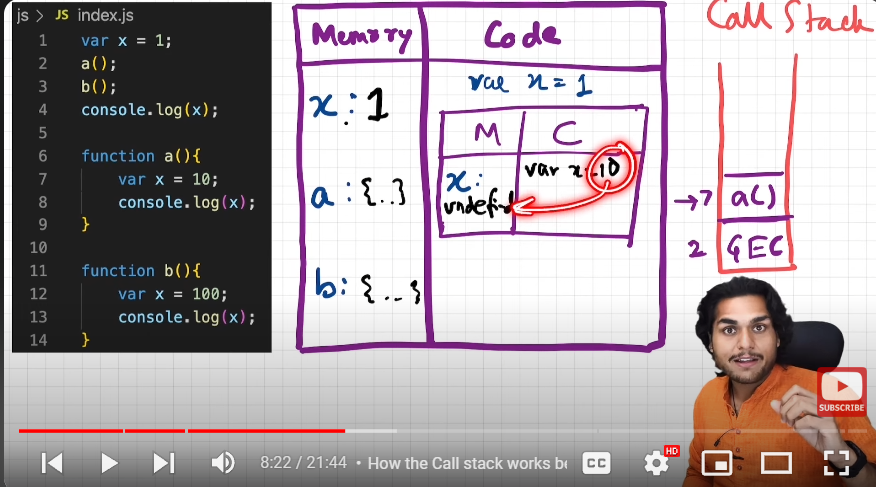 js > JS index.js
1 var x = 1;
2 a();
3 b();
4 console.log(x);
5
6 function a(){
7 var x = 10;
8 console.log(x);
9 }
10
11 function b(){
12 var x = 100;
13 console.log(x);
14 }
Memory Code
x : 1
a : {..}
b : {...}
var x = 1
M C
x : undefind
var x = 10
Call Stack
→7 a()
2 GEC
SUBSCRIBE
8:22 / 21:44 • How the Call stack works be
CC
HD